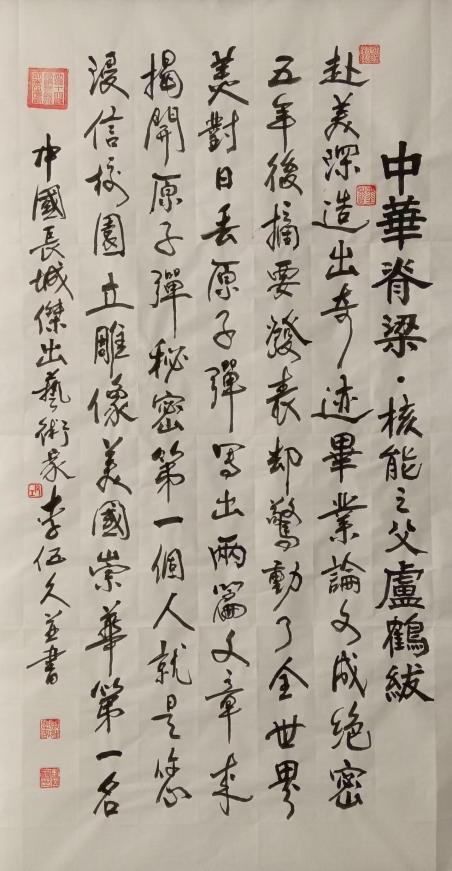 中華脊梁·核能之父盧鶴紱
赴美深造出奇迹畢業論文成絶密
五年後摘要發表却驚動了全世界
美對日丟原子彈寫出兩篇文章來
揭開原子彈秘密第一個人就是您
漫信校園立雕像美國崇華第一名
中國長城傑出藝術家李伍久並書